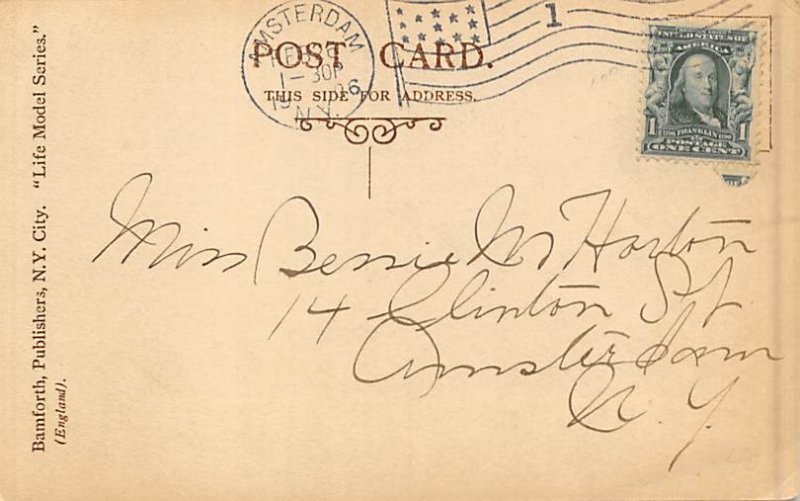 AMSTERDAM
1-30P
N.Y.
1
POST CARD.
THIS SIDE FOR ADDRESS.
UNITED STATES OF
AMERICA
1 FRANKLIN 1
POSTAGE
ONE CENT
Miss Bessie M Horton
14 Clinton St
Amsterdam
N. Y.
Bamforth, Publishers, N.Y. City. "Life Model Series."
(England).